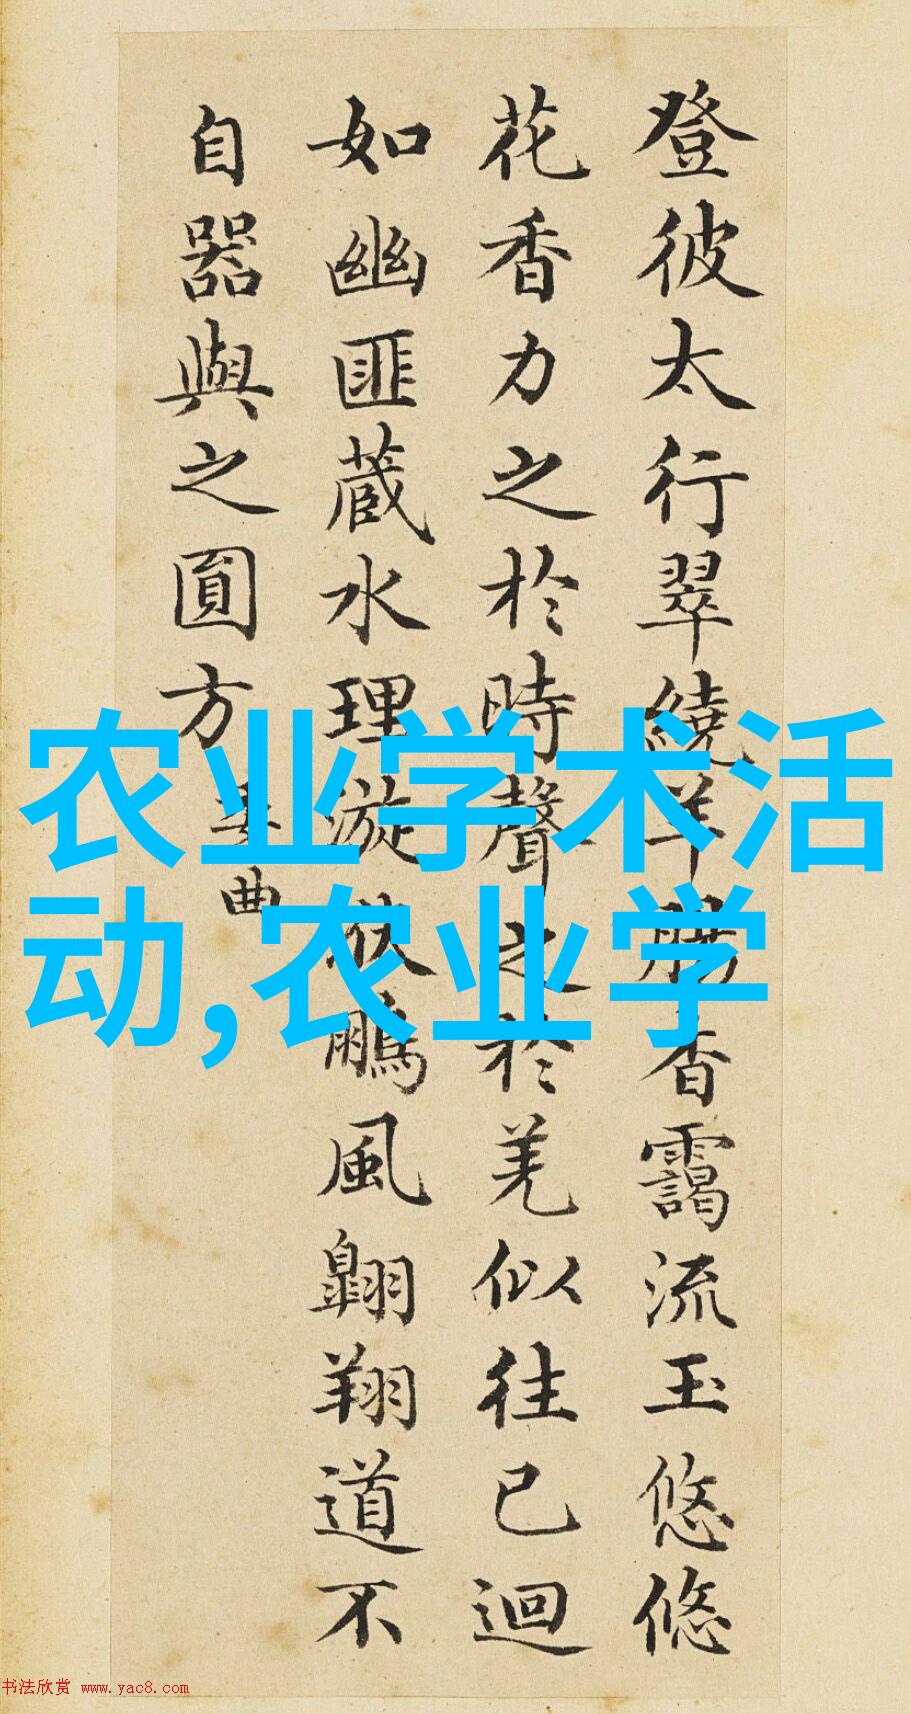 登彼太行翠繞羊腸香靄流玉悠悠
花香力之於時聲之於羌似往已迴
如幽匪蔵水理漩洑鵬風翺翔道不
自器與之圓方
委曲
农业学术活
动,农业学
书法欣赏 www.yac8.com